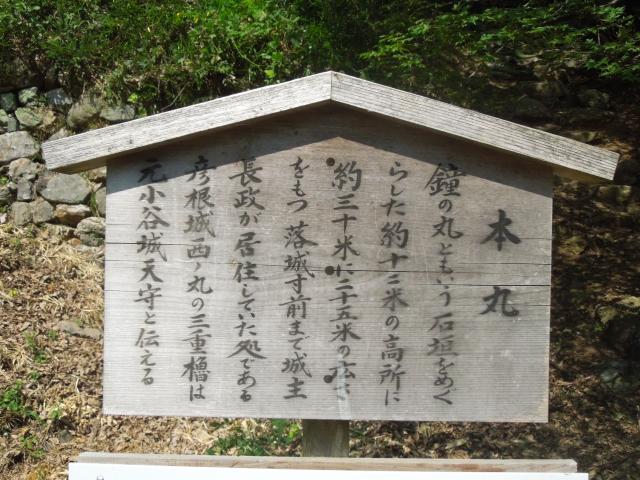 本丸
鐘の丸ともいう石垣をめぐ
らした約十二米の高所に
約三十米に二十五米の広さ
をもつ落城寸前まで城主
長政が居住していた処である
彦根城西ノ丸の三重櫓は
元小谷城天守と伝える